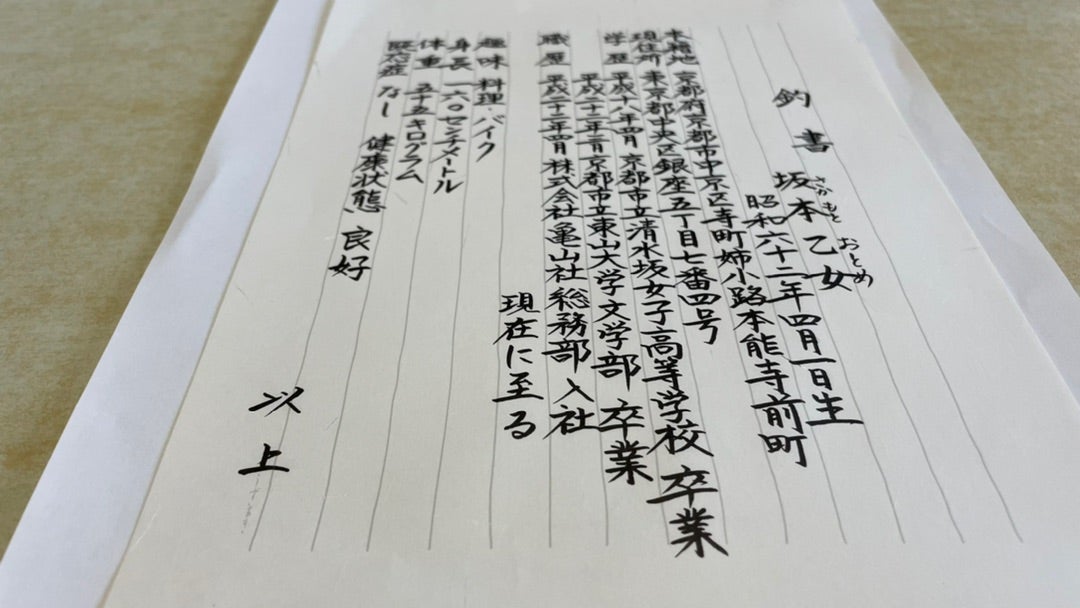 釣書
さかもと おとめ
坂本乙女
昭和六十二年四月一日生
本籍地 京都府京都市中京区寺町姉小路本能寺前町
現住所 東京都中央区銀座五丁目七番四号
学歴 平成十八年四月 京都市立清水坂女子高等学校 卒業
平成二十二年三月京都市立東山大学文学部 卒業
職歴 平成二十二年四月株式会社亀山社総務部入社
現在に至る
趣味 料理・バイク
身長 一六〇センチメートル
体重 五十五キログラム
既応症 なし 健康状態 良好
以上